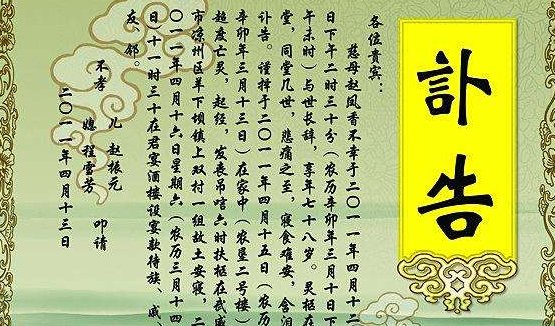 訃告
各位貴賓：
慈母赵凤香不幸于二〇一一年四月十二
日下午二时三十分（农历辛卯年三月十日下
午未时）与世长辞，享年七十八岁。灵柩在
堂，同堂几世，悲痛之至，寝食难安，含泪
讣告。谨择于二〇一一年四月十五日（农历
辛卯年三月十三日）在家中（农垦二号楼）
超度亡灵，赴经，发丧吊唁六时扶柩在武威
市凉州区羊下坝镇上双村一组故土安寝，二
〇一一年四月十六日星期六（农历三月十四
日十一时三十在君宴酒楼设宴款待族、戚、
友、邻。
不孝 儿 赵振元
媳 程雪芳 叩请
二〇一一年四月十三日